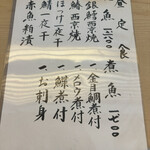 昼定食
魚 一六〇〇
一 銀鱈西京焼
一 鰆西京焼
ほっけ一夜干
鯖一夜干
赤魚粕漬
煮魚 一七〇〇
一 金目鯛煮付
一 メロウ煮付
一 鰈煮付
一 お刺身